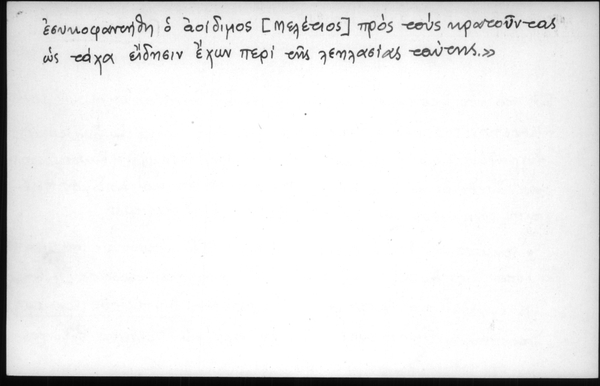 ἐσυκοφαντήθη ὁ ἀοίδιμος [Μελέτιος] πρὸς τοὺς κρατοῦντας
ὡς τάχα εἴδησιν ἔχων περὶ τῆς λεηλασίας ταύτης.»